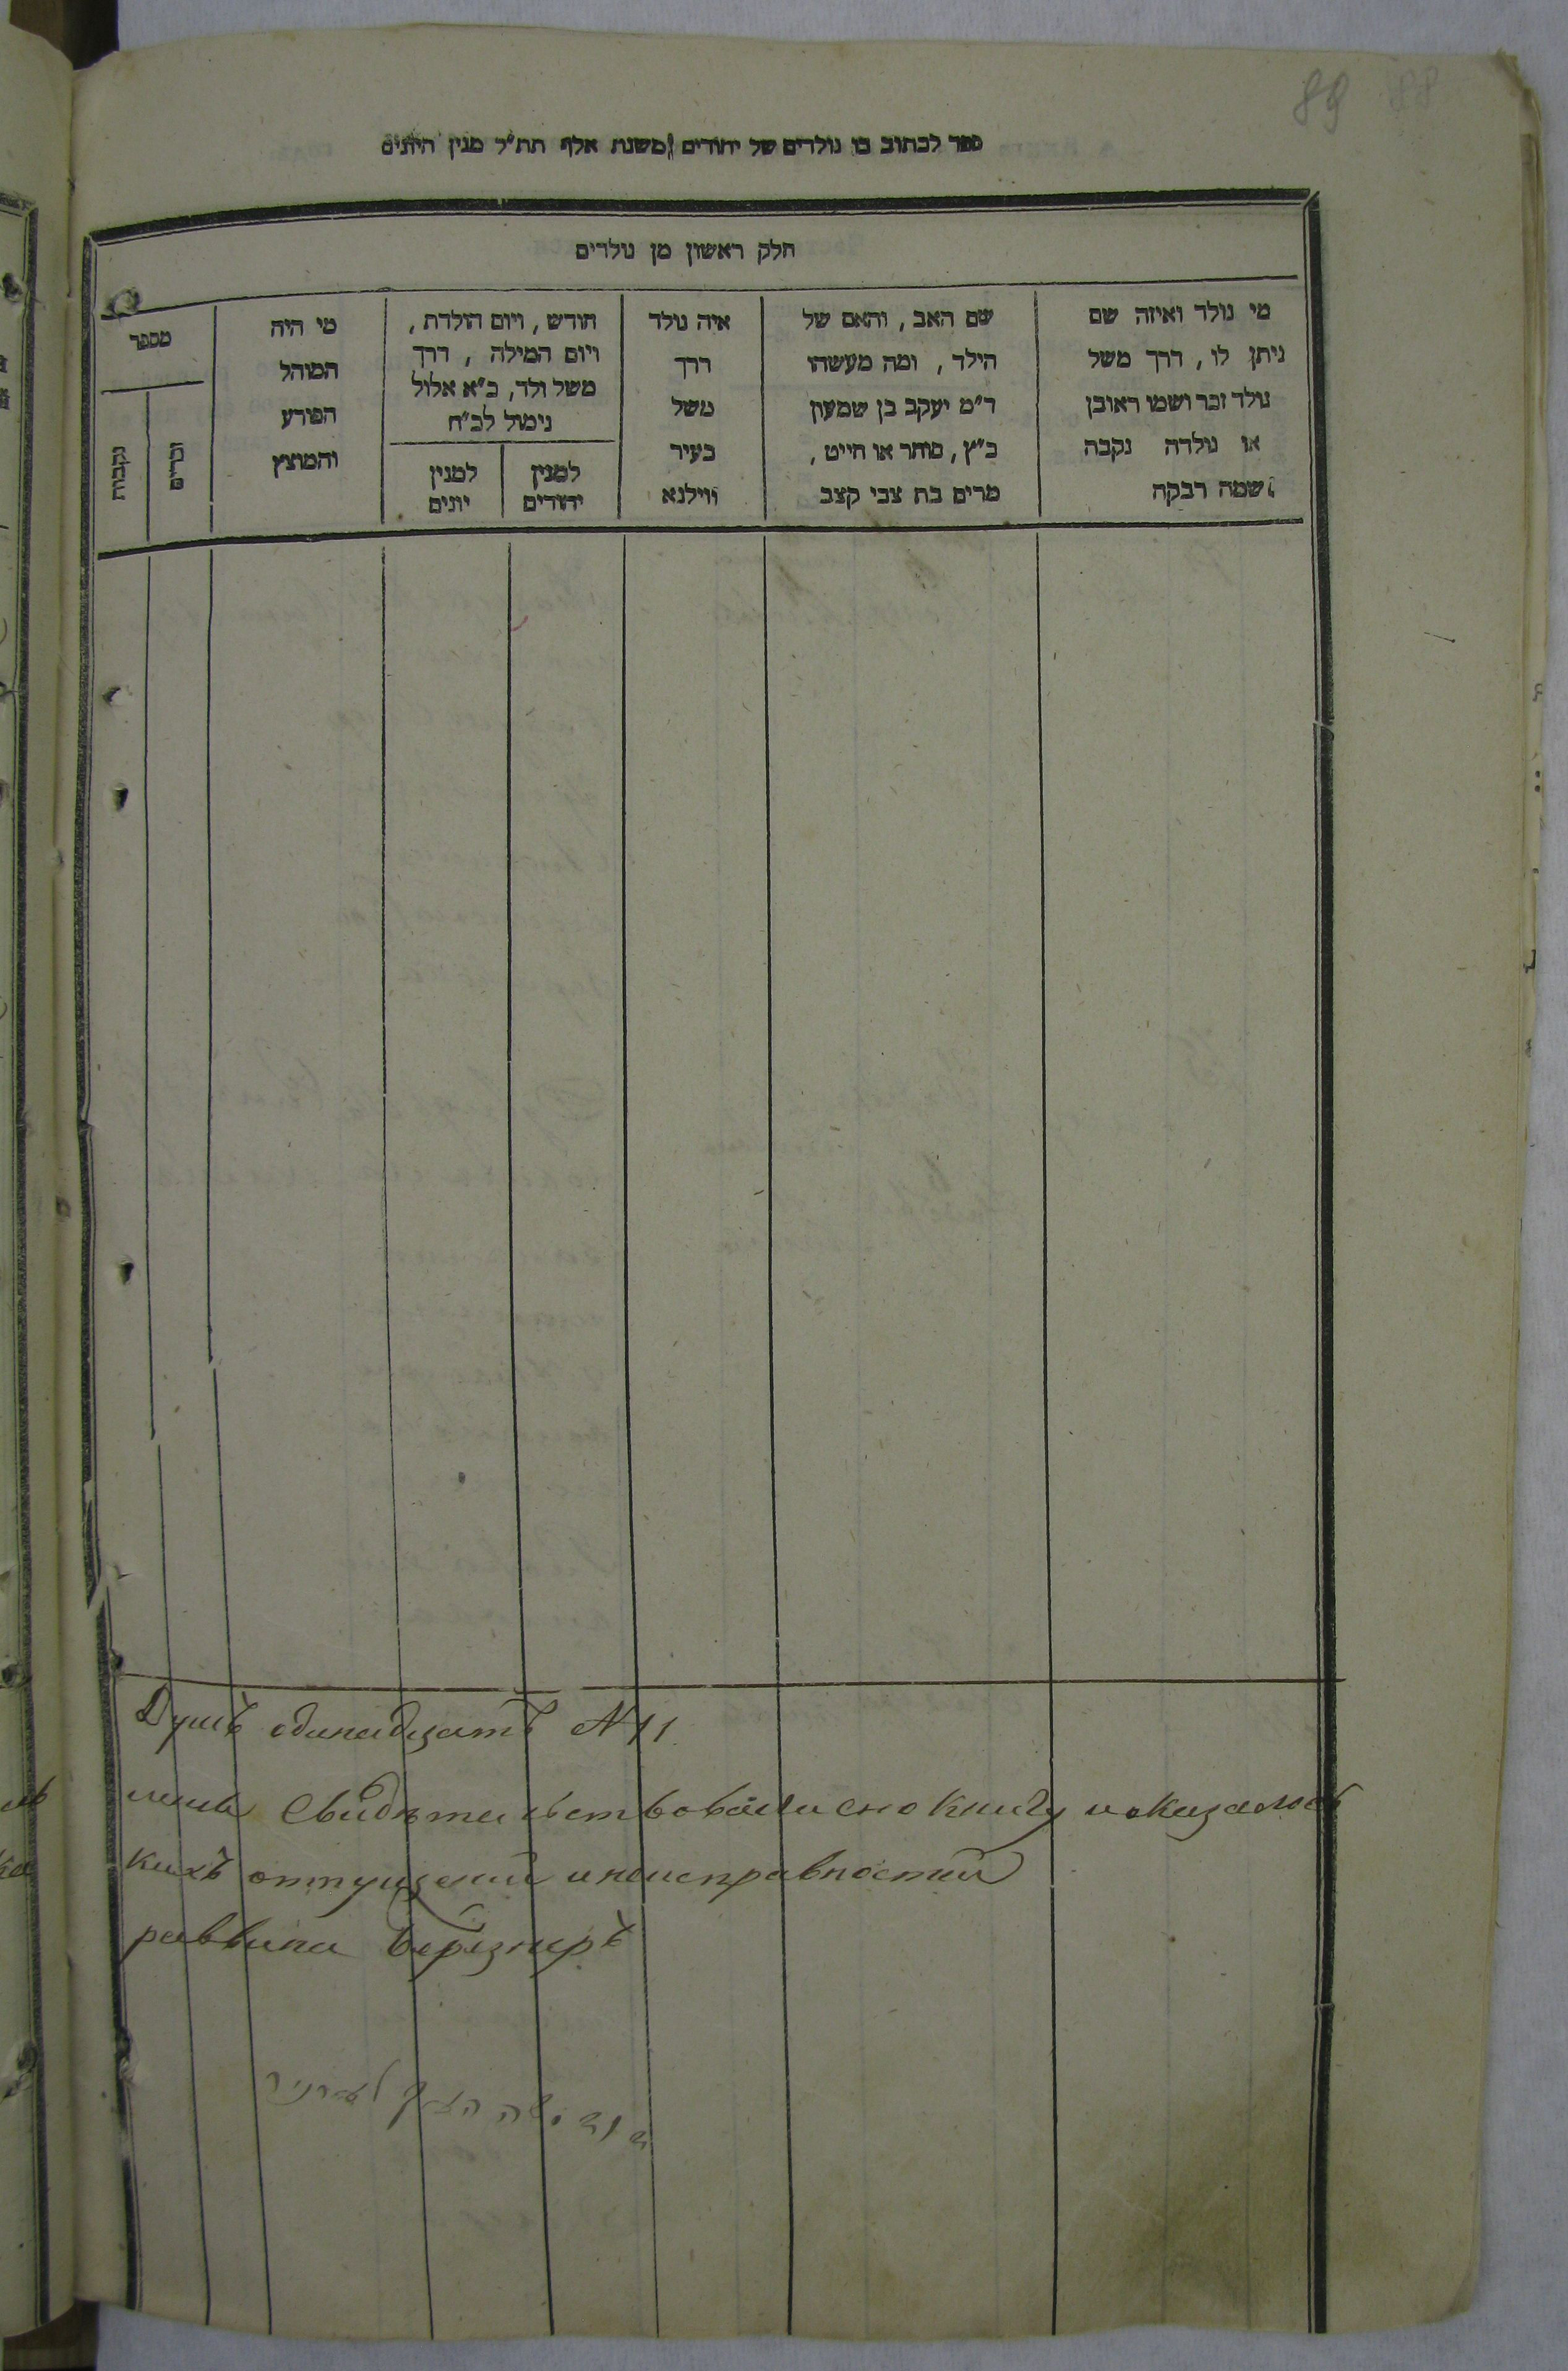 89 88
ספר לכתוב בו נולדים של יהודים משנת אלף תת״ל מנין היונים
חלק ראשון מן נולדים
מי נולד ואיזה שם
ניתן לו, דרך משל
נולד זכר ושמו ראובן
או נולדה נקבה
ושמה רבקה
שם האב, והאם של
הילד, ומה מעשהו
ר״מ יעקב בן שמעון
כ״ץ, סוחר או חייט,
מרים בת צבי קצב
איה נולד
דרך
משל
בעיר
ווילנא
חודש, ויום הולדת,
ויום המילה, דרך
משל ולד, כ״א אלול
נימול לכ״ח
למנין
יהודים
למנין
יונים
מי היה
המוהל
הפורע
והמוצץ
מספר
זכרים
נקבות
Душъ одинадцатъ №11
свидѣтельствовали сию книгу и оказалось
кихъ оптущений и неисправностий
раввина Березнеръ